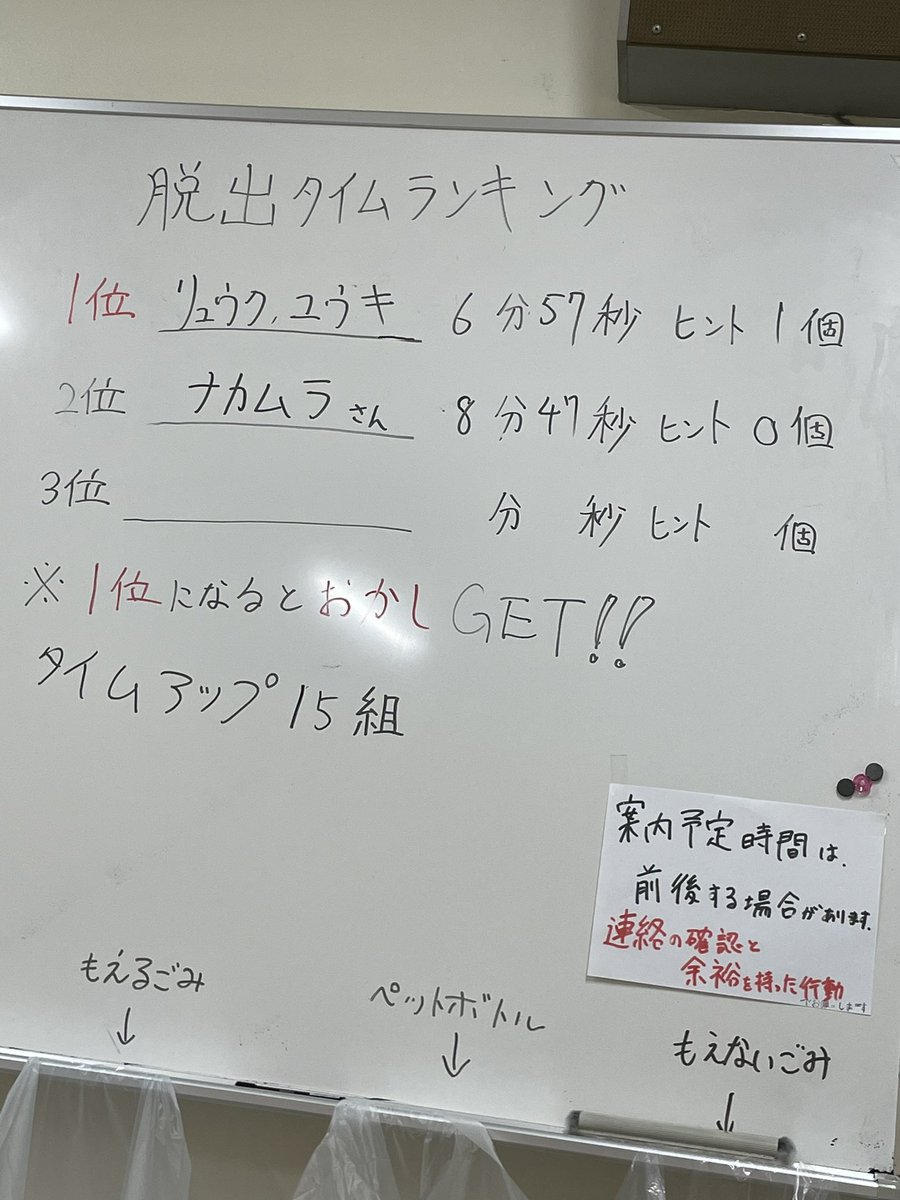 脱出タイムランキング
1位 リュウク,ユウキ 6分57秒 ヒント1個
2位 ナカムラさん 8分47秒 ヒント0個
3位 分 秒 ヒント 個
※1位になるとおかしGET!!
タイムアップ15組
案内予定時間は、
前後する場合があります。
連絡の確認と
余裕を持った行動
もえるごみ
↓
ペットボトル
↓
もえないごみ
↓